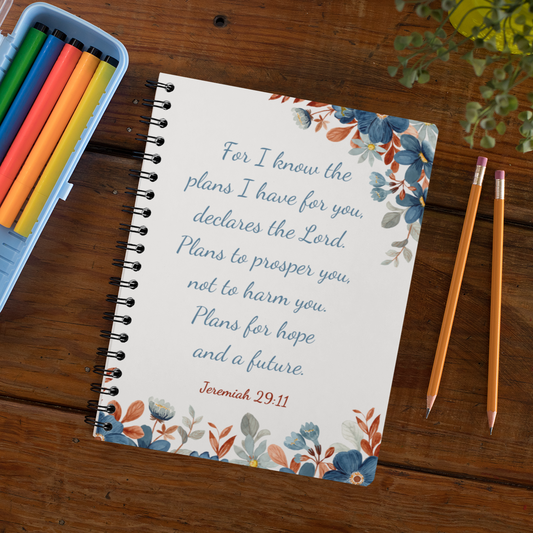 For I know the
plans I have for you,
declares the Lord.
Plans to prosper you,
not to harm you.
Plans for hope
and a future.
Jeremiah 29:11